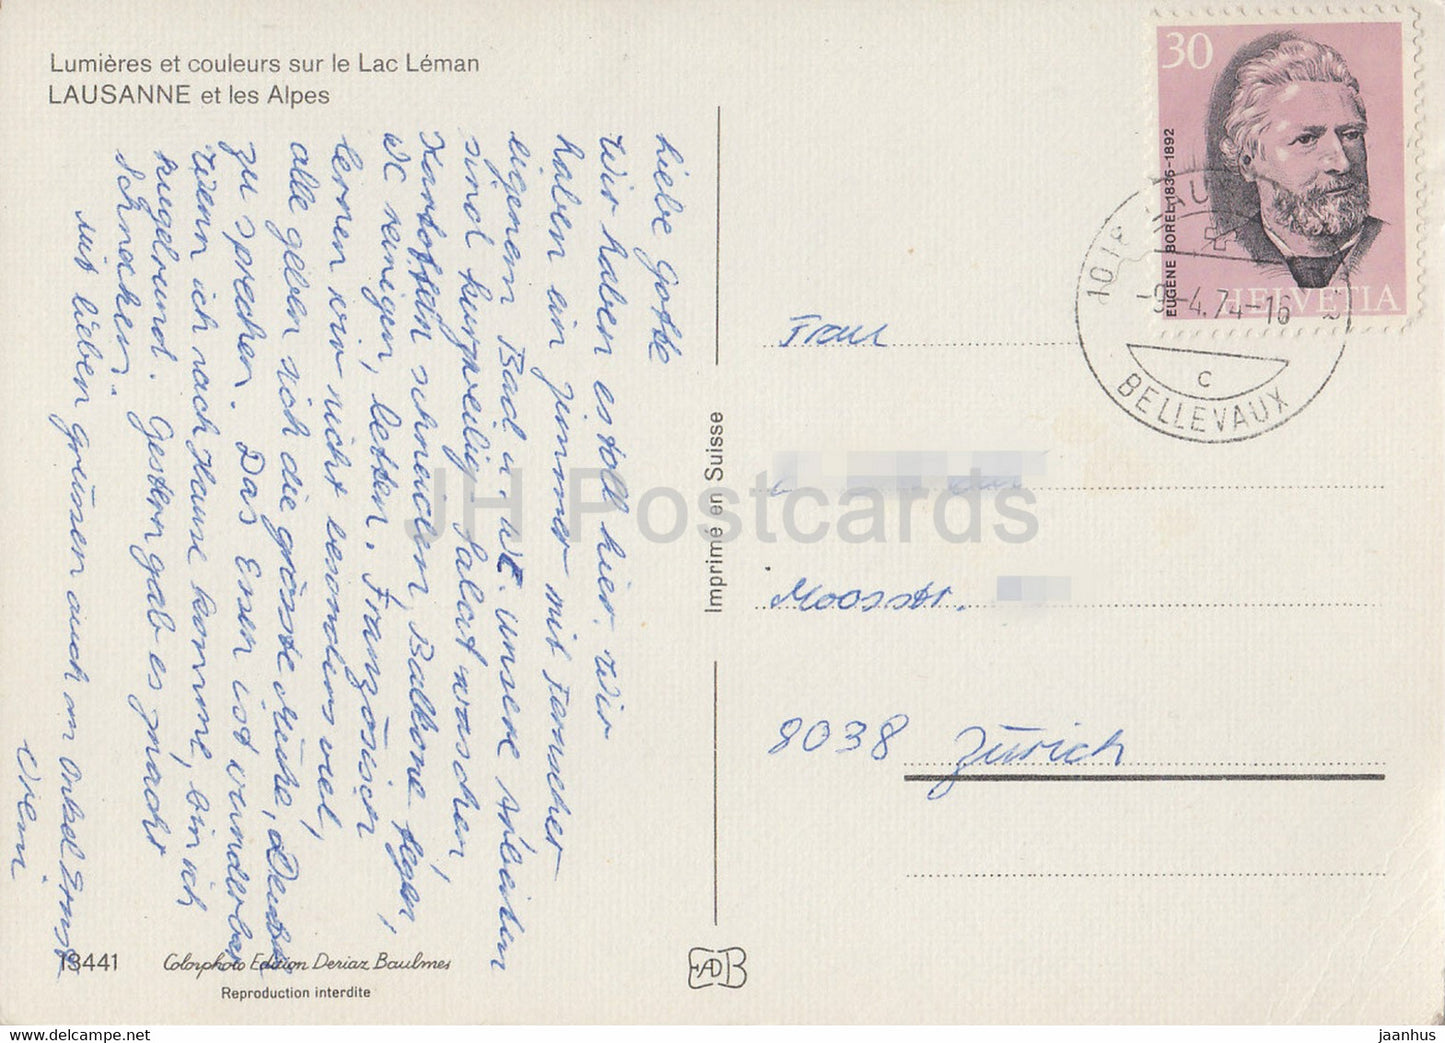 Lumières et couleurs sur le Lac Léman
LAUSANNE et les Alpes
Liebe Gotte
Wir haben es toll hier. Wir
haben ein Zimmer mit Fernseher
eigenem Bad u. WC. Unsere Arbeiten
sind kurzweilig Salat waschen,
Kartoffeln schneiden, Balkone fegen,
WC reinigen, betten. Französisch
lernen wir nicht besonders viel,
alle geben sich die grösste Mühe, Deutsch
zu sprechen. Das Essen ist wunderbar
Wenn ich nach Hause komme, bin ich
kugelrund. Gestern gab es
Schnecken.
Mit lieben Grüssen auch an Onkel Ernst
Vreni
13441
Colorphoto Edition Deriaz Baulmes
Reproduction interdite
Imprimé en Suisse
EADB
30
EUGENE BOREL 1835-1892
HELVETIA
-9.-4.74-16
C
BELLEVAUX
Frau
Moosstr.
8038 Zürich
JH Postcards
www.delcampe.net
jaanhus